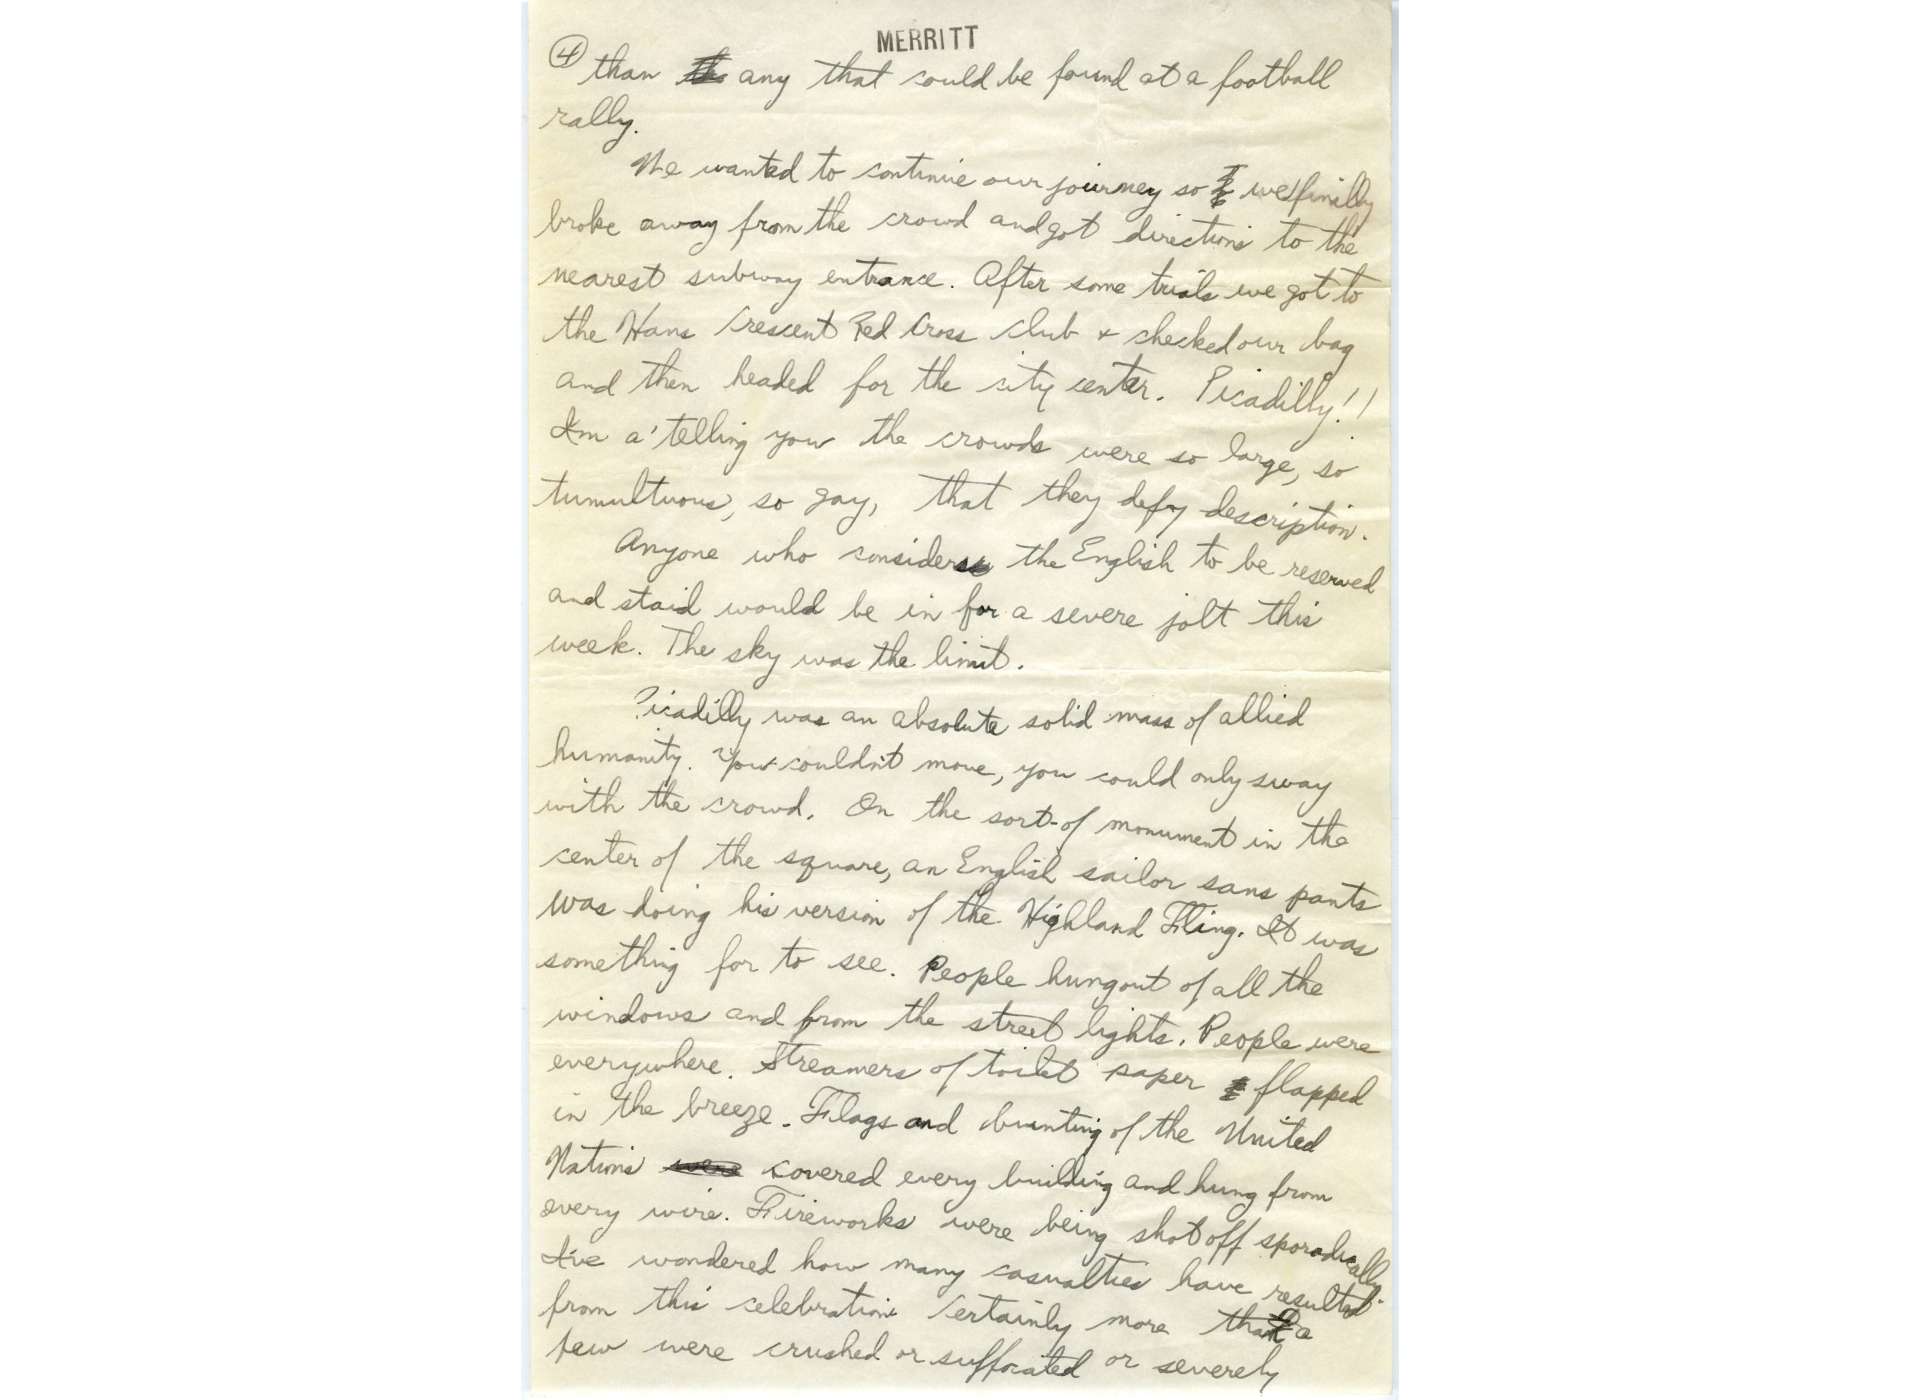 MERRITT
4
than any that could be found at a football
rally.
We wanted to continue our journey so we finally
broke away from the crowd and got directions to the
nearest subway entrance. After some trials we got to
the Hans Crescent Red Cross Club + checked our bag
and then headed for the city center. Picadilly!!
I'm a' telling you the crowds were so large, so
tumultuous, so gay, that they defy description.
Anyone who considers the English to be reserved
and staid would be in for a severe jolt this
week. The sky was the limit.
Picadilly was an absolute solid mass of allied
humanity. You couldn't move, you could only sway
with the crowd. On the sort-of monument in the
center of the square, an English sailor sans pants
was doing his version of the Highland Fling. It was
something for to see. People hung out of all the
windows and from the street lights. People were
everywhere. Streamers of toilet paper flapped
in the breeze. Flags and bunting of the United
Nations were covered every building and hung from
every wire. Fireworks were being shot off sporadically
I've wondered how many casualties have resulted
from this celebration. Certainly more than a
few were crushed or suffocated or severely